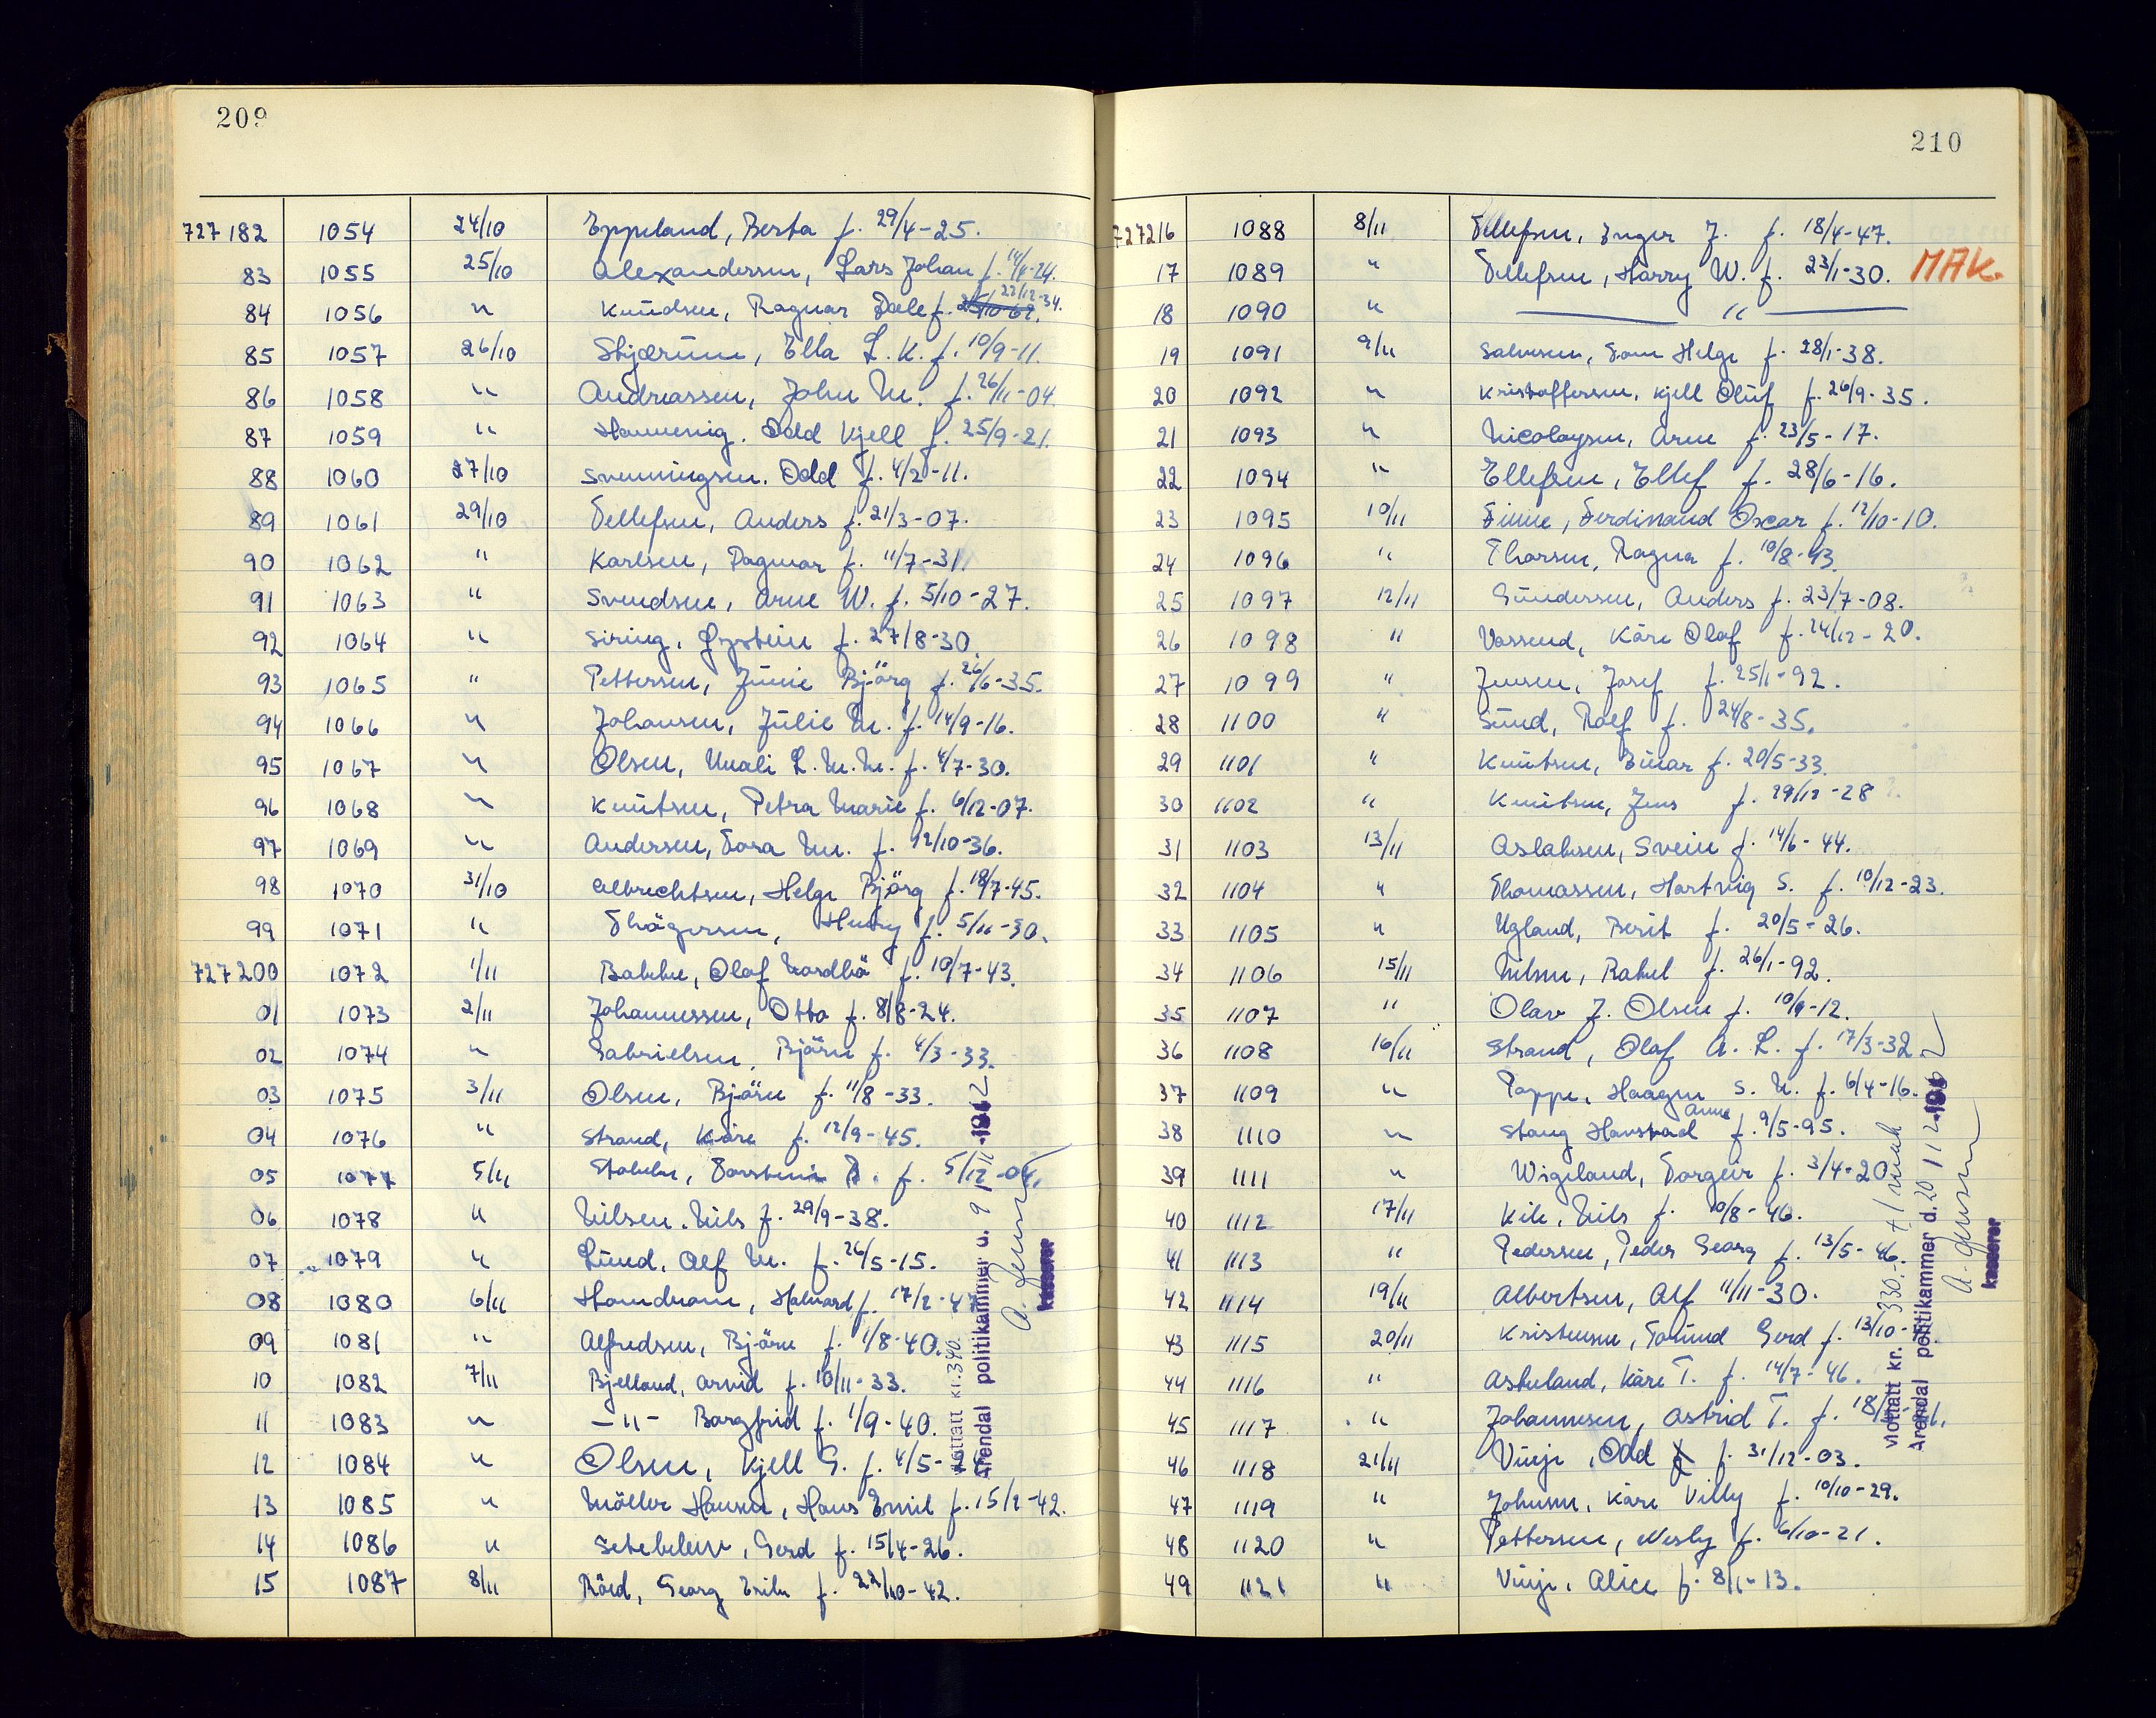 209
727182 1054 24/10 Eppeland, Berta f. 29/4-25.
83 1055 25/10 Alexandersen, Lars Johan f. 14/4-24.
84 1056 " Knudsen, Ragnar Dale f. 22/12-34.
85 1057 26/10 Stjærum, Ella L. K. f. 10/9-11.
86 1058 " Andreassen, John M. f. 26/11-04.
87 1059 " Hammernig. Odd Kjell f. 25/9-21.
88 1060 27/10 Svenningsen. Odd f. 4/2-11.
89 1061 29/10 Tellefsen, Anders f. 21/3-07.
90 1062 " Karlsen, Dagmar f. 11/7-31.
91 1063 " Svendsen, Arne W. f. 5/10-27.
92 1064 " Siring, Øystein f. 27/8-30.
93 1065 " Pettersen, Junie Björg f. 26/6-35.
94 1066 " Johansen, Julie M. f. 14/9-16.
95 1067 " Olsen, Unali L. M. M. f. 4/7-30.
96 1068 " Knutsen, Petra Marie f. 6/12-07.
97 1069 " Andersen, Tora M. f. 12/10-36.
98 1070 31/10 Albrechtsen, Helge Björg f. 18/7-45.
99 1071 " Thögersen, Henry f. 5/11-30.
727200 1072 1/11 Bakke, Olaf Nordbö f. 10/7-43.
01 1073 2/11 Johannessen, Otto f. 8/8-24.
02 1074 " Gabrielsen, Björn f. 4/3-33.
03 1075 3/11 Olsen, Björn f. 11/8-33.
04 1076 " Strand, Kåre f. 12/9-45.
05 1077 5/11 Stabelu, Torstein P. f. 5/12-04.
06 1078 " Nilsen. Nils f. 29/9-38.
07 1079 " Lund, Alf M. f. 26/5-15.
08 1080 6/11 Homdrom, Halvard f. 17/2-47
09 1081 " Alfredsen, Björn f. 1/8-40.
10 1082 7/11 Bjelland, Arvid f. 10/11-33.
11 1083 " -"- Borgfrid f. 1/9-40.
12 1084 " Olsen, Kjell G. f. 4/5-
13 1085 " Möller Hansen, Hans Emil f. 15/2-42.
14 1086 " Setekleiv, Gerd f. 15/4-26.
15 1087 8/11 Röed, Georg Emil f. 22/10-42.
Mottatt kr. 340.
Arendal politikammer d. 9/11-1962
A. Jensen
kasserer
210
727216 1088 8/11 Tellefsen, Inger J. f. 18/4-47.
17 1089 " Tellefsen, Harry W. f. 23/1-30. MAK.
18 1090 " "
19 1091 9/11 Salvesen, Tom Helge f. 28/1-38.
20 1092 " Kristoffersen, Kjell Oluf f. 26/9-35.
21 1093 " Nicolaysen, Arne f. 23/5-17.
22 1094 " Ellefsen, Ellef f. 28/6-16.
23 1095 10/11 Finne, Ferdinand Oscar f. 12/10-10.
24 1096 " Thorsen, Ragna f. 10/8-43.
25 1097 12/11 Gundersen, Anders f. 23/7-08.
26 1098 " Vassend, Kåre Olaf f. 24/12-20.
27 1099 " Jensen, Josef f. 25/1-92.
28 1100 " Sund, Rolf f. 24/8-35.
29 1101 " Knutsen, Einar f. 20/5-33.
30 1102 " Knutsen, Jens f. 29/12-28
31 1103 13/11 Aslaksen, Svein f. 14/6-44.
32 1104 " Thomassen, Hartvig S. f. 10/12-23.
33 1105 " Ugland, Berit f. 20/5-26.
34 1106 15/11 Nilsen, Rakel f. 26/1-92.
35 1107 " Olav J. Olsen f. 10/9-12.
36 1108 16/11 Strand, Olaf A. L. f. 17/3-32.
37 1109 " Poppe, Haagen S. N. f. 6/4-16.
38 1110 " Stang Hanstad Anne f. 9/5-95.
39 1111 " Wigeland, Torgeir f. 3/4-20
40 1112 17/11 Kile, Nils f. 10/8-46.
41 1113 " Pedersen, Peder Georg f. 13/5-46.
42 1114 19/11 Albertsen, Alf 11/11-30.
43 1115 20/11 Kristensen, Torund Gerd f. 13/10-
44 1116 " Askeland, Kåre T. f. 14/7-46.
45 1117 " Johannesen, Astrid T. f. 18/
46 1118 21/11 Vinje, Odd f. 31/12-03.
47 1119 " Johnsen, Kåre Villy f. 10/10-29.
48 1120 " Pettersen, Wesly f. 6/10-21.
49 1121 " Vinje, Alice f. 8/1-13.
Mottatt kr. 330.- + 1 mak
Arendal politikammer d. 20/11 1962
A. Jensen
kasserer